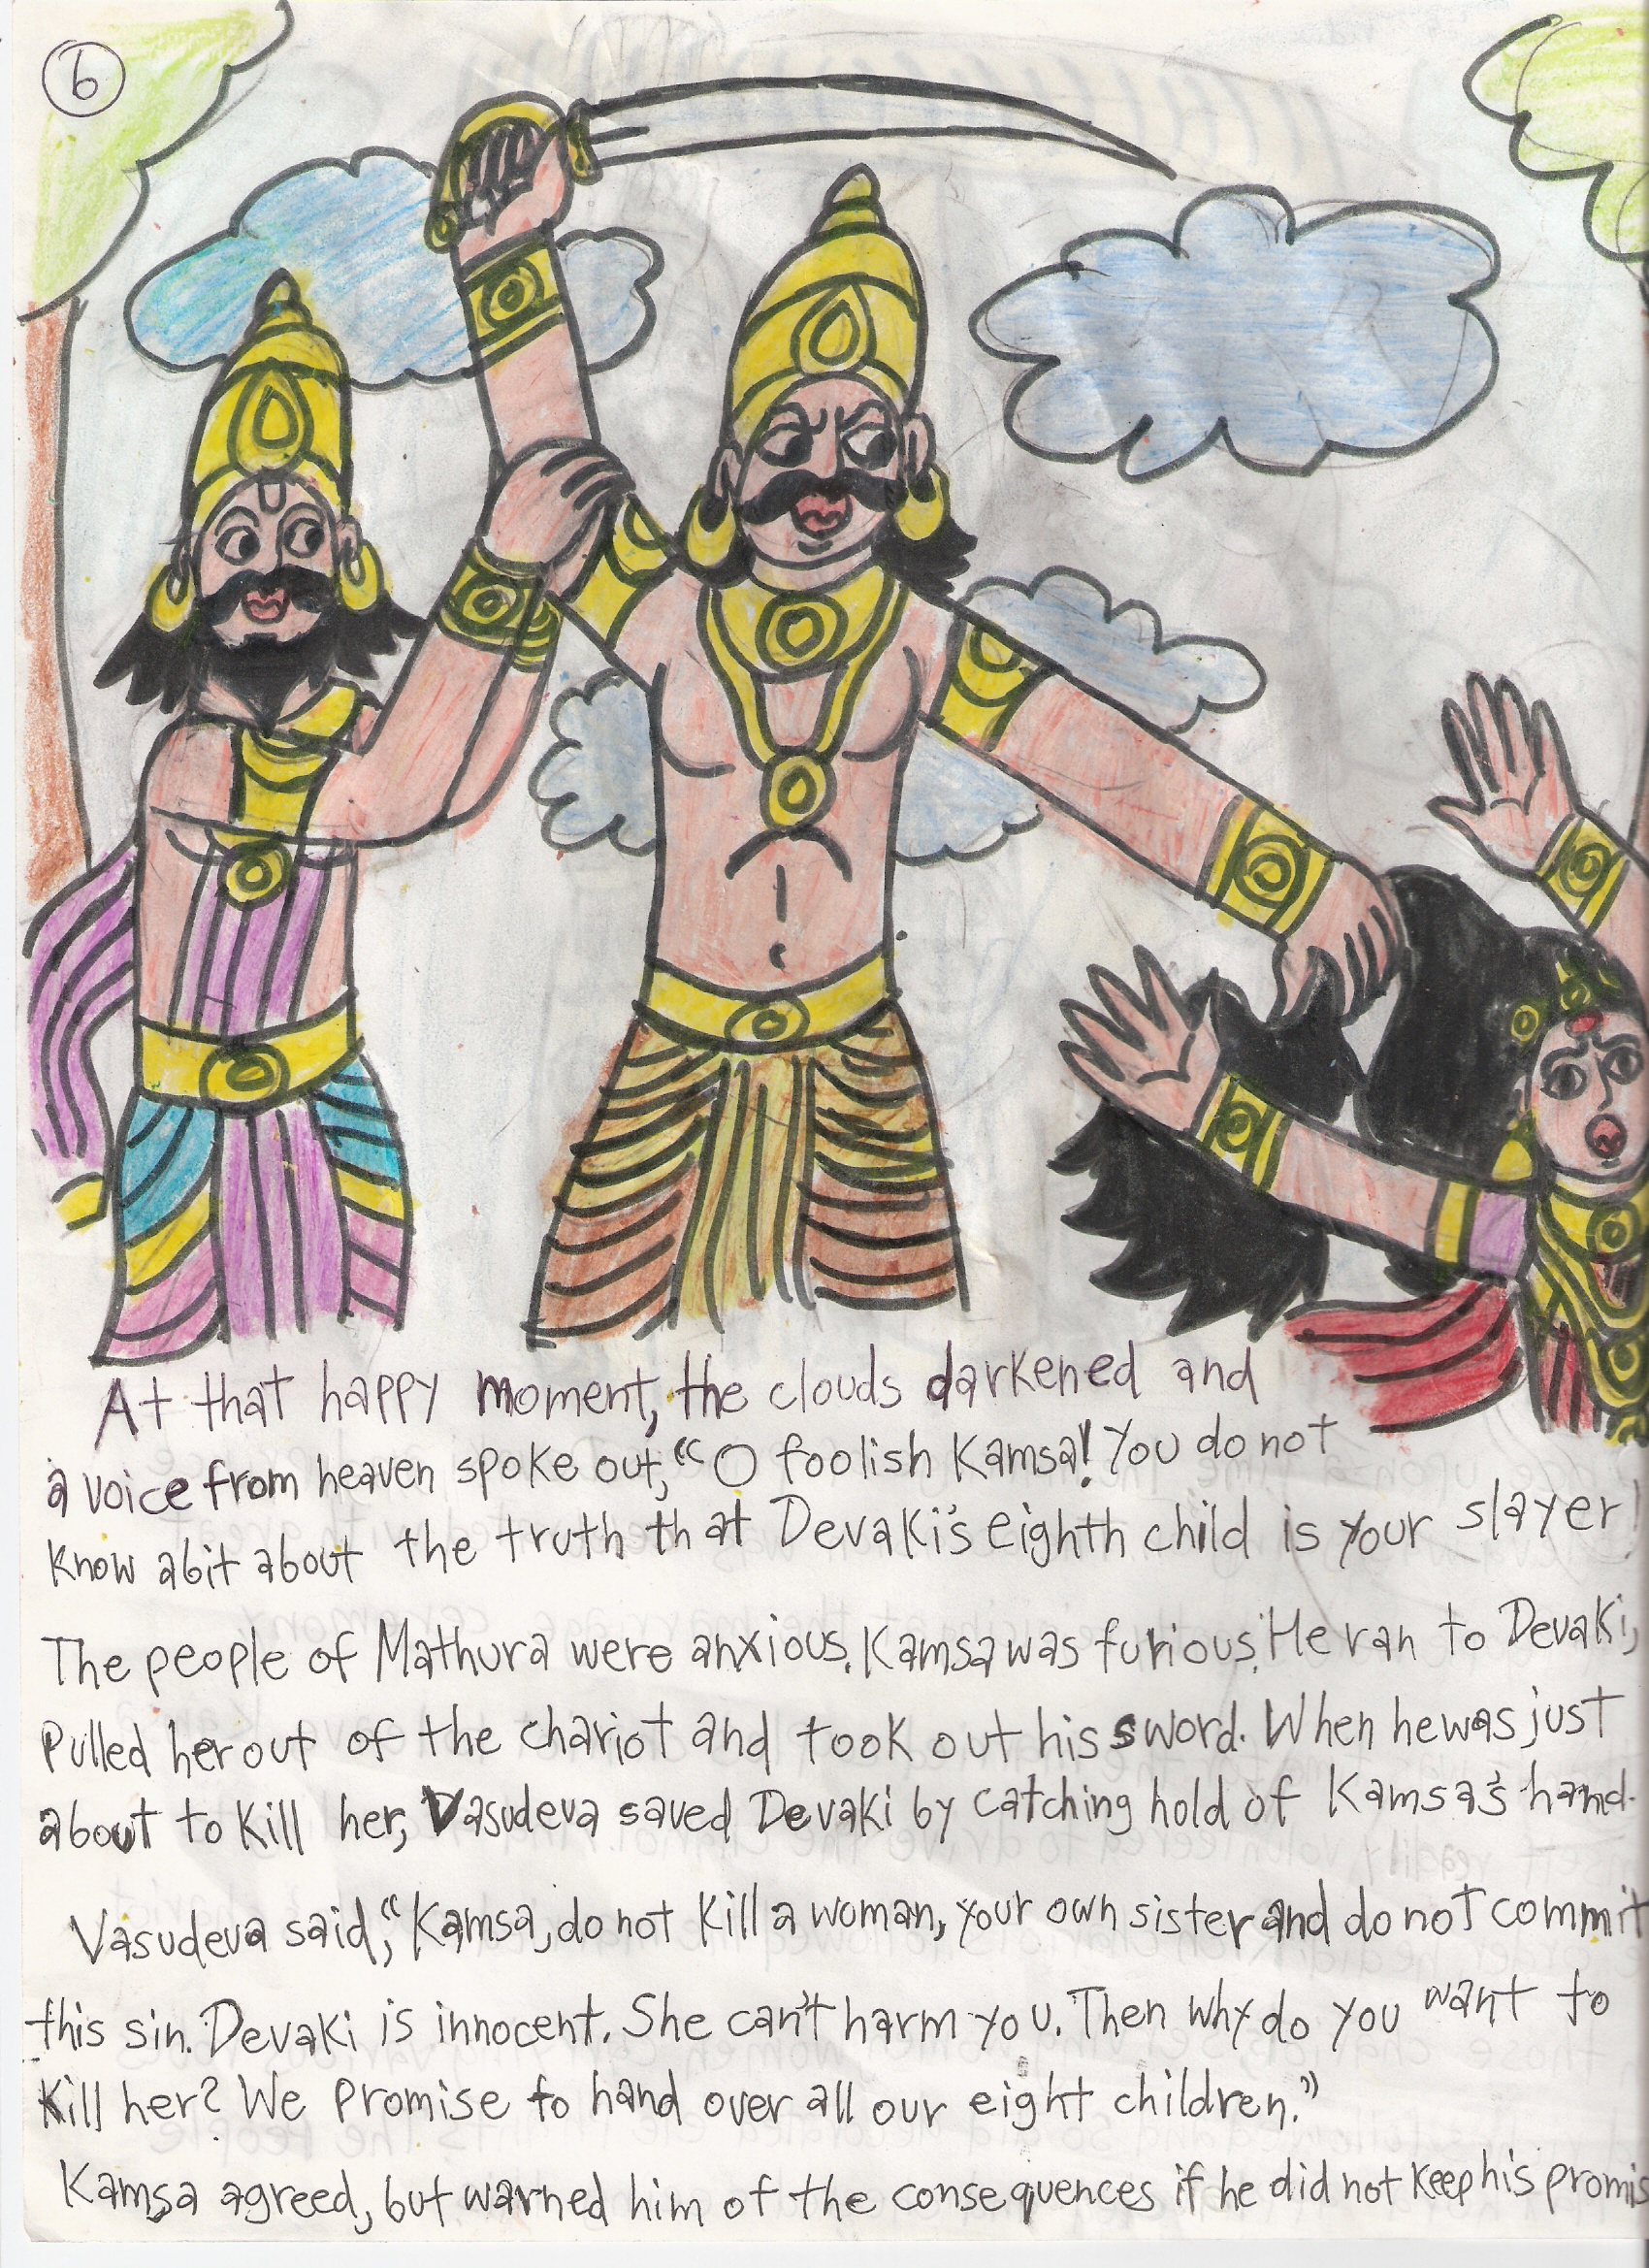 6
At that happy moment, the clouds darkened and
a voice from heaven spoke out, "O foolish Kamsa! You do not
know abit about the truth that Devaki's eighth child is your slayer!
The people of Mathura were anxious. Kamsa was furious. He ran to Devaki,
Pulled her out of the chariot and took out his sword. When he was just
about to kill her, Vasudeva saved Devaki by catching hold of Kamsa's hand.
Vasudeva said, "Kamsa, do not kill a woman, your own sister and do not commit
this sin. Devaki is innocent. She can't harm you. Then why do you want to
kill her? We promise to hand over all our eight children."
Kamsa agreed, but warned him of the consequences if he did not keep his promis